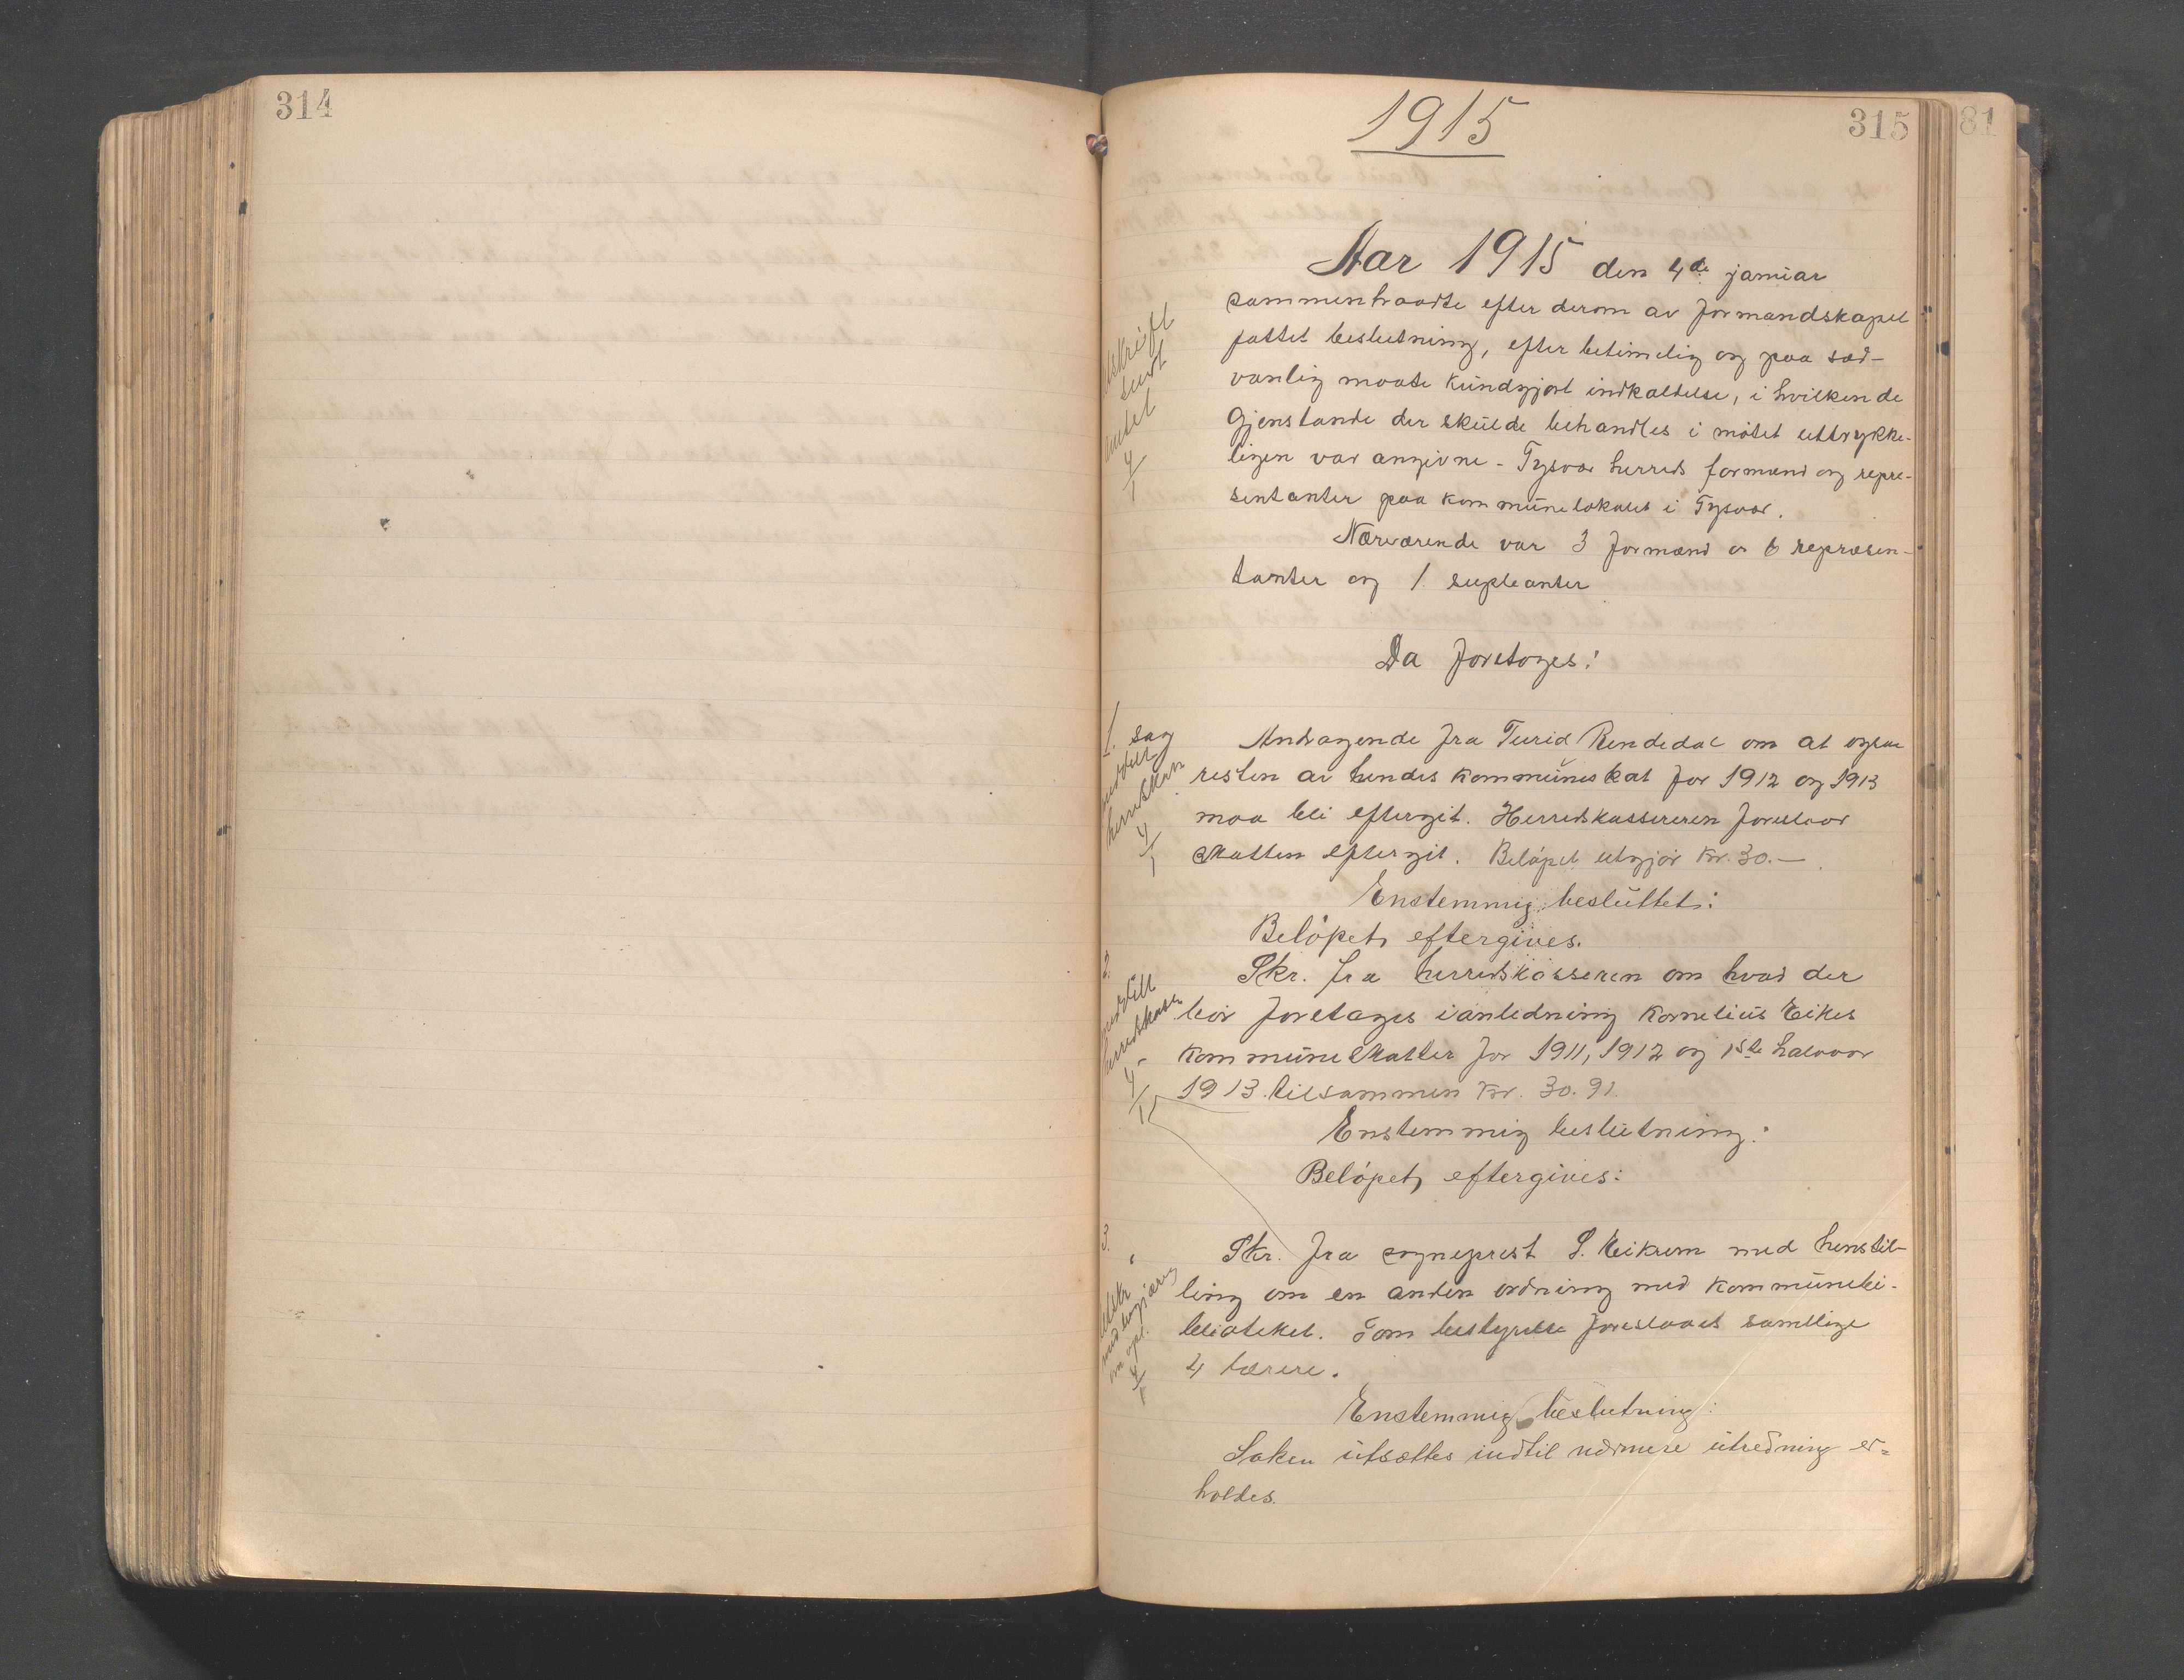 314
1915
315
81
Aar 1915 den 4de januar
sammentraadte efter derom av formandskapet
fattet beslutning, efter betimelig og paa sæd-
vanlig maate kundgjort indkaldelse, i hvilken de
Gjenstande der skulde behandles i møtet uttrykke-
ligen var angivne - Tysvær herreds formænd og repræ-
sentanter paa kommunelokalet i Tysvær.
Nærværende var 3 formænd og 6 repræsen-
tanter og 1 supleanter
Da foretoges:
1. sag
Andragende fra Turid Rendedal om at ogsaa
resten av hendes kommuneskat for 1912 og 1913
maa bli eftergit. Herredskassereren foreslaar
skatten eftergit. Beløpet utgjør kr. 30.—
Enstemmig besluttet:
Beløpet eftergives.
2.
Skr. fra herredskasseren om hvad der
bør foretages i anledning Kornelius Eikes
kommuneskatter for 1911, 1912 og 1ste halvaar
1913. tilsammen kr. 30.91.
Enstemmig beslutning:
Beløpet eftergives:
3.
Skr. fra sogneprest S. Eikrem med henstil-
ling om en anden ordning med kommunebi-
blioteket. Som bestyrelse foreslaaes samtlige
4 lærere.
Enstemmig beslutning:
Saken utsættes indtil nærmere utredning er-
holdes.